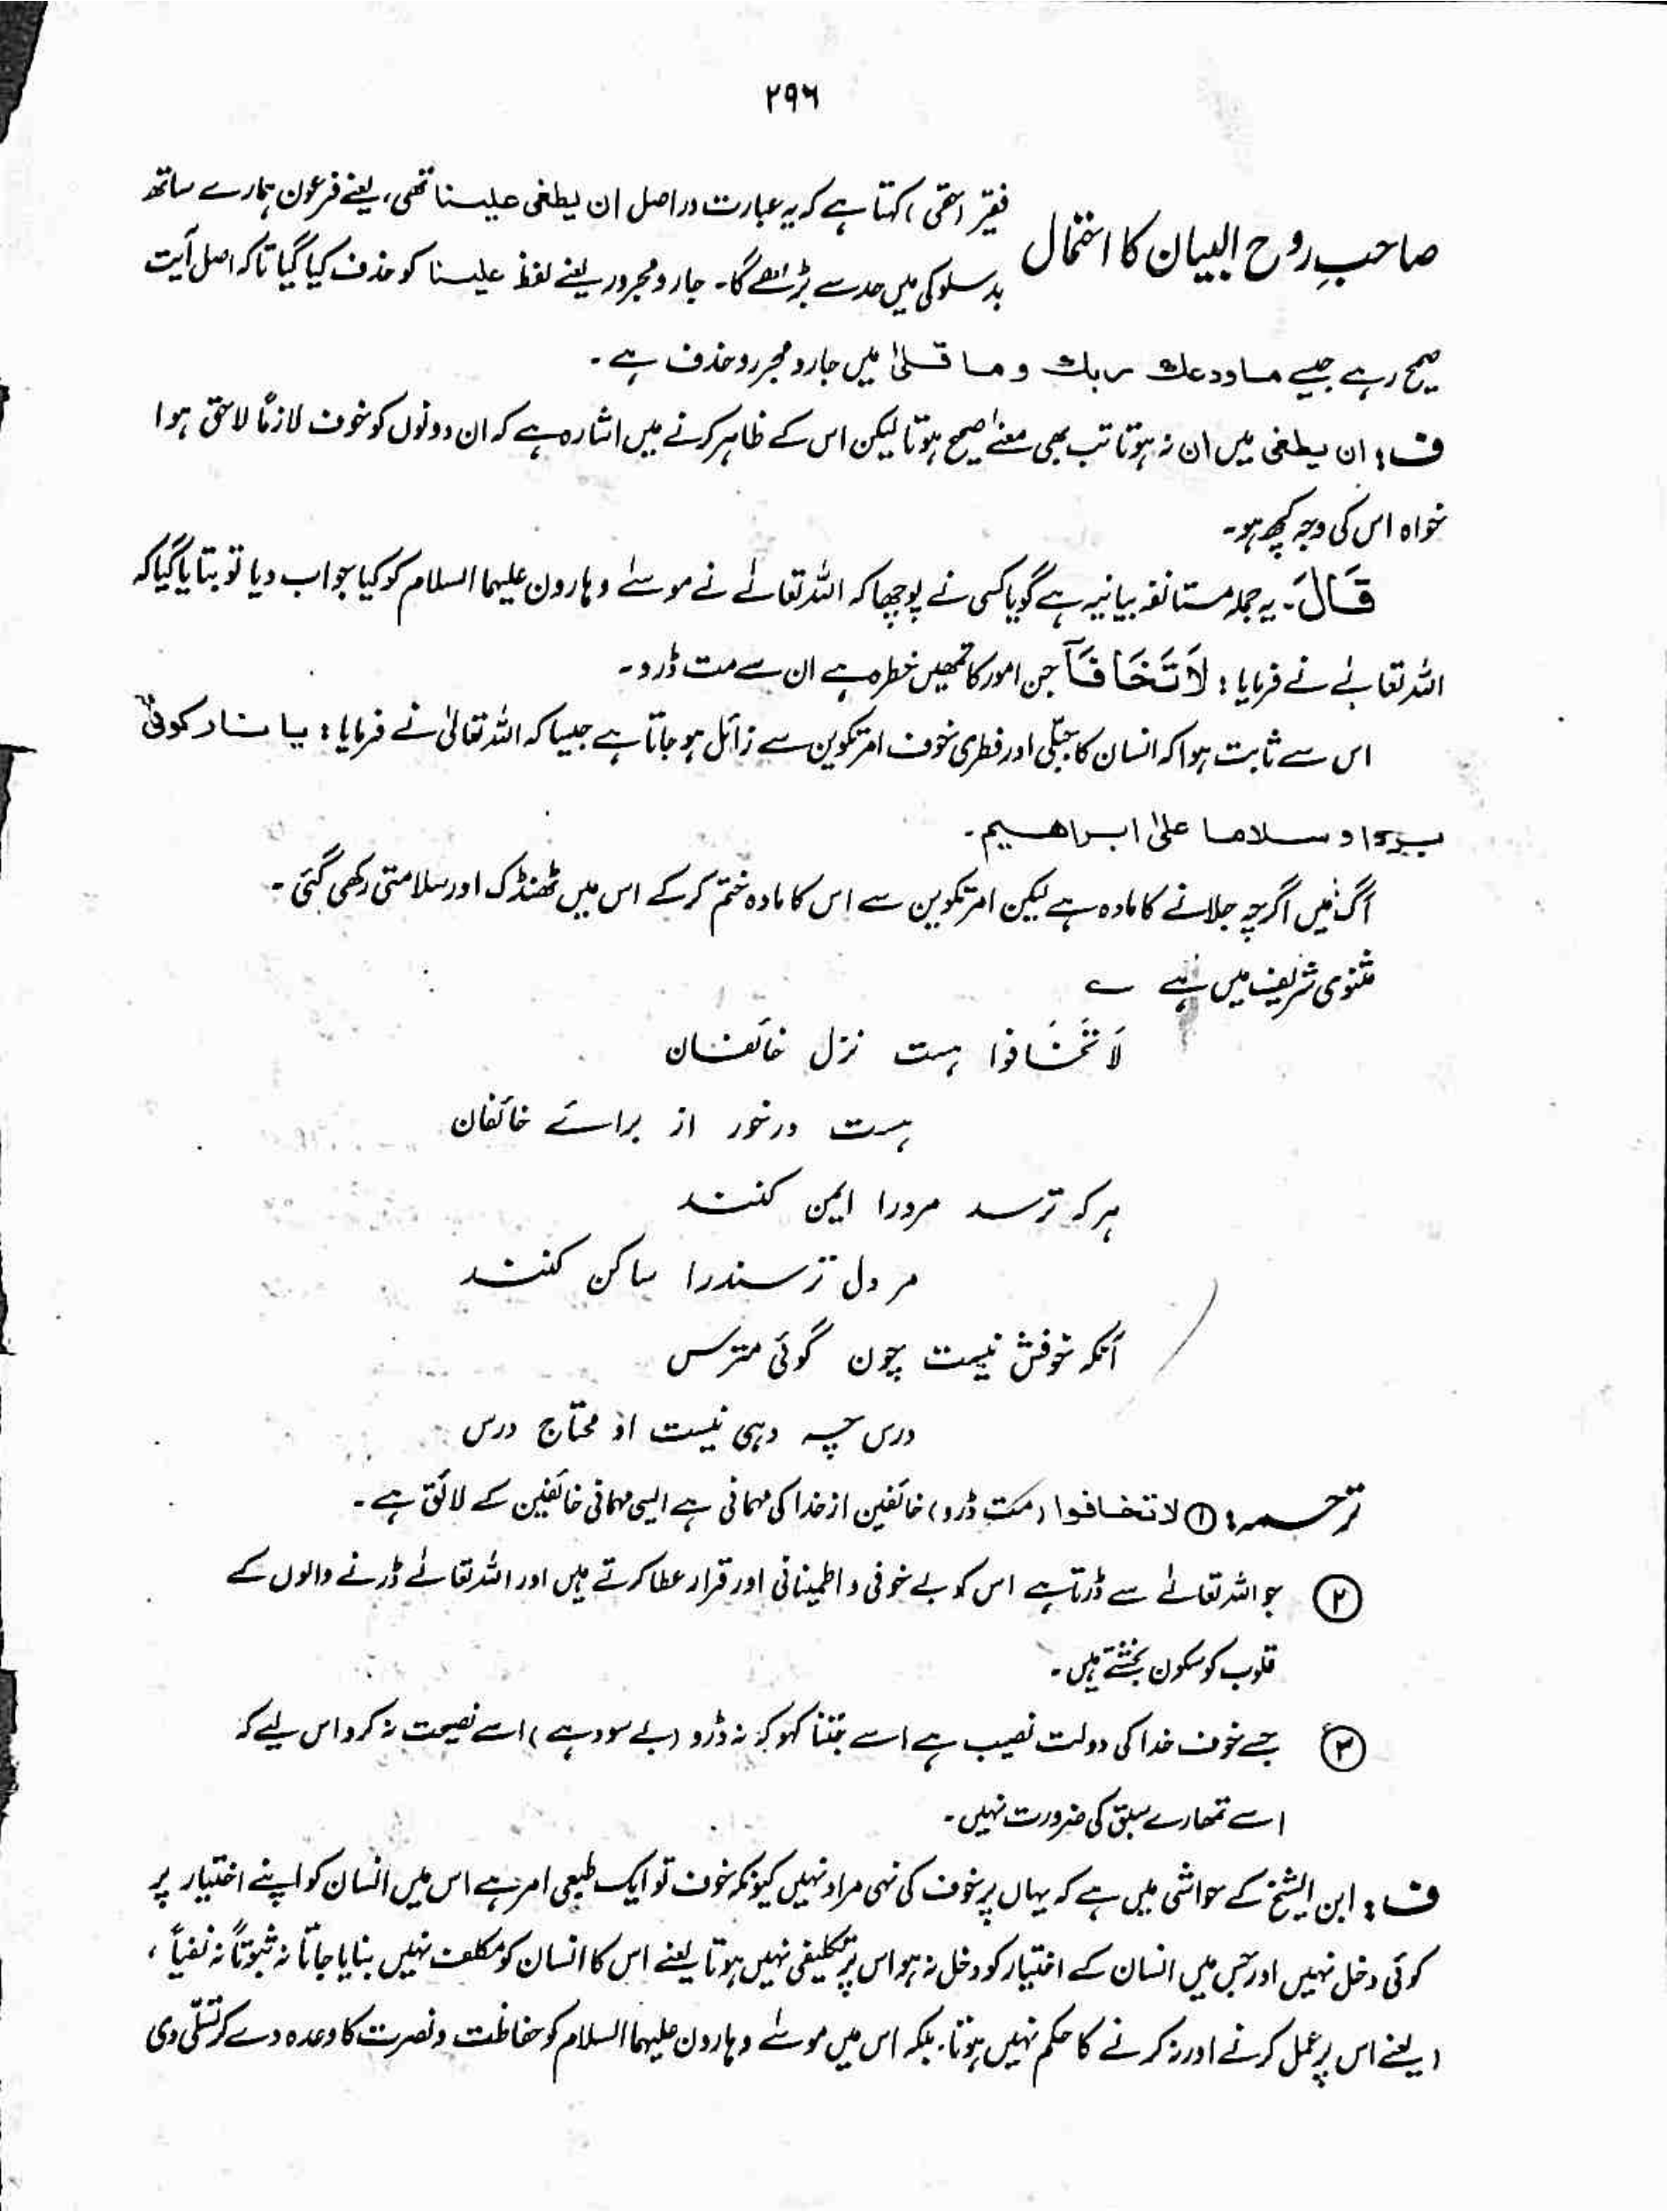 ۲۹۶
صاحبِ روح البیان کا احتمال
فقیر (حقی) کہتا ہے کہ یہ عبارت دراصل ان یطغی علینا تھی، یعنے فرعون ہمارے ساتھ
بدسلوکی میں حد سے بڑھے گا۔ جار و مجرور یعنے لفظ علینا کو حذف کیا گیا تاکہ اصل آیت
صحیح رہے جیسے ماودعك ربك و ما قلیٰ میں جار و مجرور حذف ہے۔
ف: ان یطغی میں ان نہ ہوتا تب بھی معنےٰ صحیح ہوتا لیکن اس کے ظاہر کرنے میں اشارہ ہے کہ ان دونوں کو خوف لازماً لاحق ہوا
خواہ اس کی وجہ کچھ ہو۔
قَالَ۔ یہ جملہ مستانفہ بیانیہ ہے گویا کسی نے پوچھا کہ اللہ تعالےٰ نے موسےٰ و ہارون علیہما السلام کو کیا جواب دیا تو بتایا گیا کہ
اللہ تعالےٰ نے فرمایا: لَا تَخَافَآ جن امور کا تمھیں خطرہ ہے ان سے مت ڈرو۔
اس سے ثابت ہوا کہ انسان کا جبلّی اور فطری خوف امر تکوین سے زائل ہو جاتا ہے جیسا کہ اللہ تعالیٰ نے فرمایا: یا نار کونی
بردا و سلاما علیٰ ابراھیم۔
آگ میں اگرچہ جلانے کا مادہ ہے لیکن امر تکوین سے اس کا مادہ ختم کرکے اس میں ٹھنڈک اور سلامتی رکھی گئی۔
مثنوی شریف میں ہے ے
لَا تَخَافوا ہست نزل خائفان
ہست درخور از برائے خائفان
ہر کہ ترسد مرورا ایمن کنند
مر دل ترسندرا ساکن کنند
آنکہ خوفش نیست چون گوئی مترس
درس چہ دہی نیست او محتاج درس
ترجمہ: ① لا تخافوا (مت ڈرو) خائفین از خدا کی مہمانی ہے ایسی مہمانی خائفین کے لائق ہے۔
② جو اللہ تعالےٰ سے ڈرتا ہے اس کو بے خوفی و اطمینانی اور قرار عطا کرتے ہیں اور اللہ تعالےٰ ڈرنے والوں کے
قلوب کو سکون بخشتے ہیں۔
③ جسے خوف خدا کی دولت نصیب ہے اسے جتنا کہو کہ نہ ڈرو (بے سود ہے) اسے نصیحت نہ کرو اس لیے کہ
اسے تمھارے سبق کی ضرورت نہیں۔
ف: ابن الشیخ کے حواشی میں ہے کہ یہاں پر خوف کی نہی مراد نہیں کیونکہ خوف تو ایک طبعی امر ہے اس میں انسان کو اپنے اختیار پر
کوئی دخل نہیں اور جس میں انسان کے اختیار کو دخل نہ ہو اس پر تکلیفی نہیں ہوتا یعنے اس کا انسان کو مکلف نہیں بنایا جاتا نہ ثبوتاً نہ نفیاً،
(یعنے اس پر عمل کرنے اور نہ کرنے کا حکم نہیں ہوتا۔ بلکہ اس میں موسےٰ و ہارون علیہما السلام کو حفاظت و نصرت کا وعدہ دے کر تسلّی دی